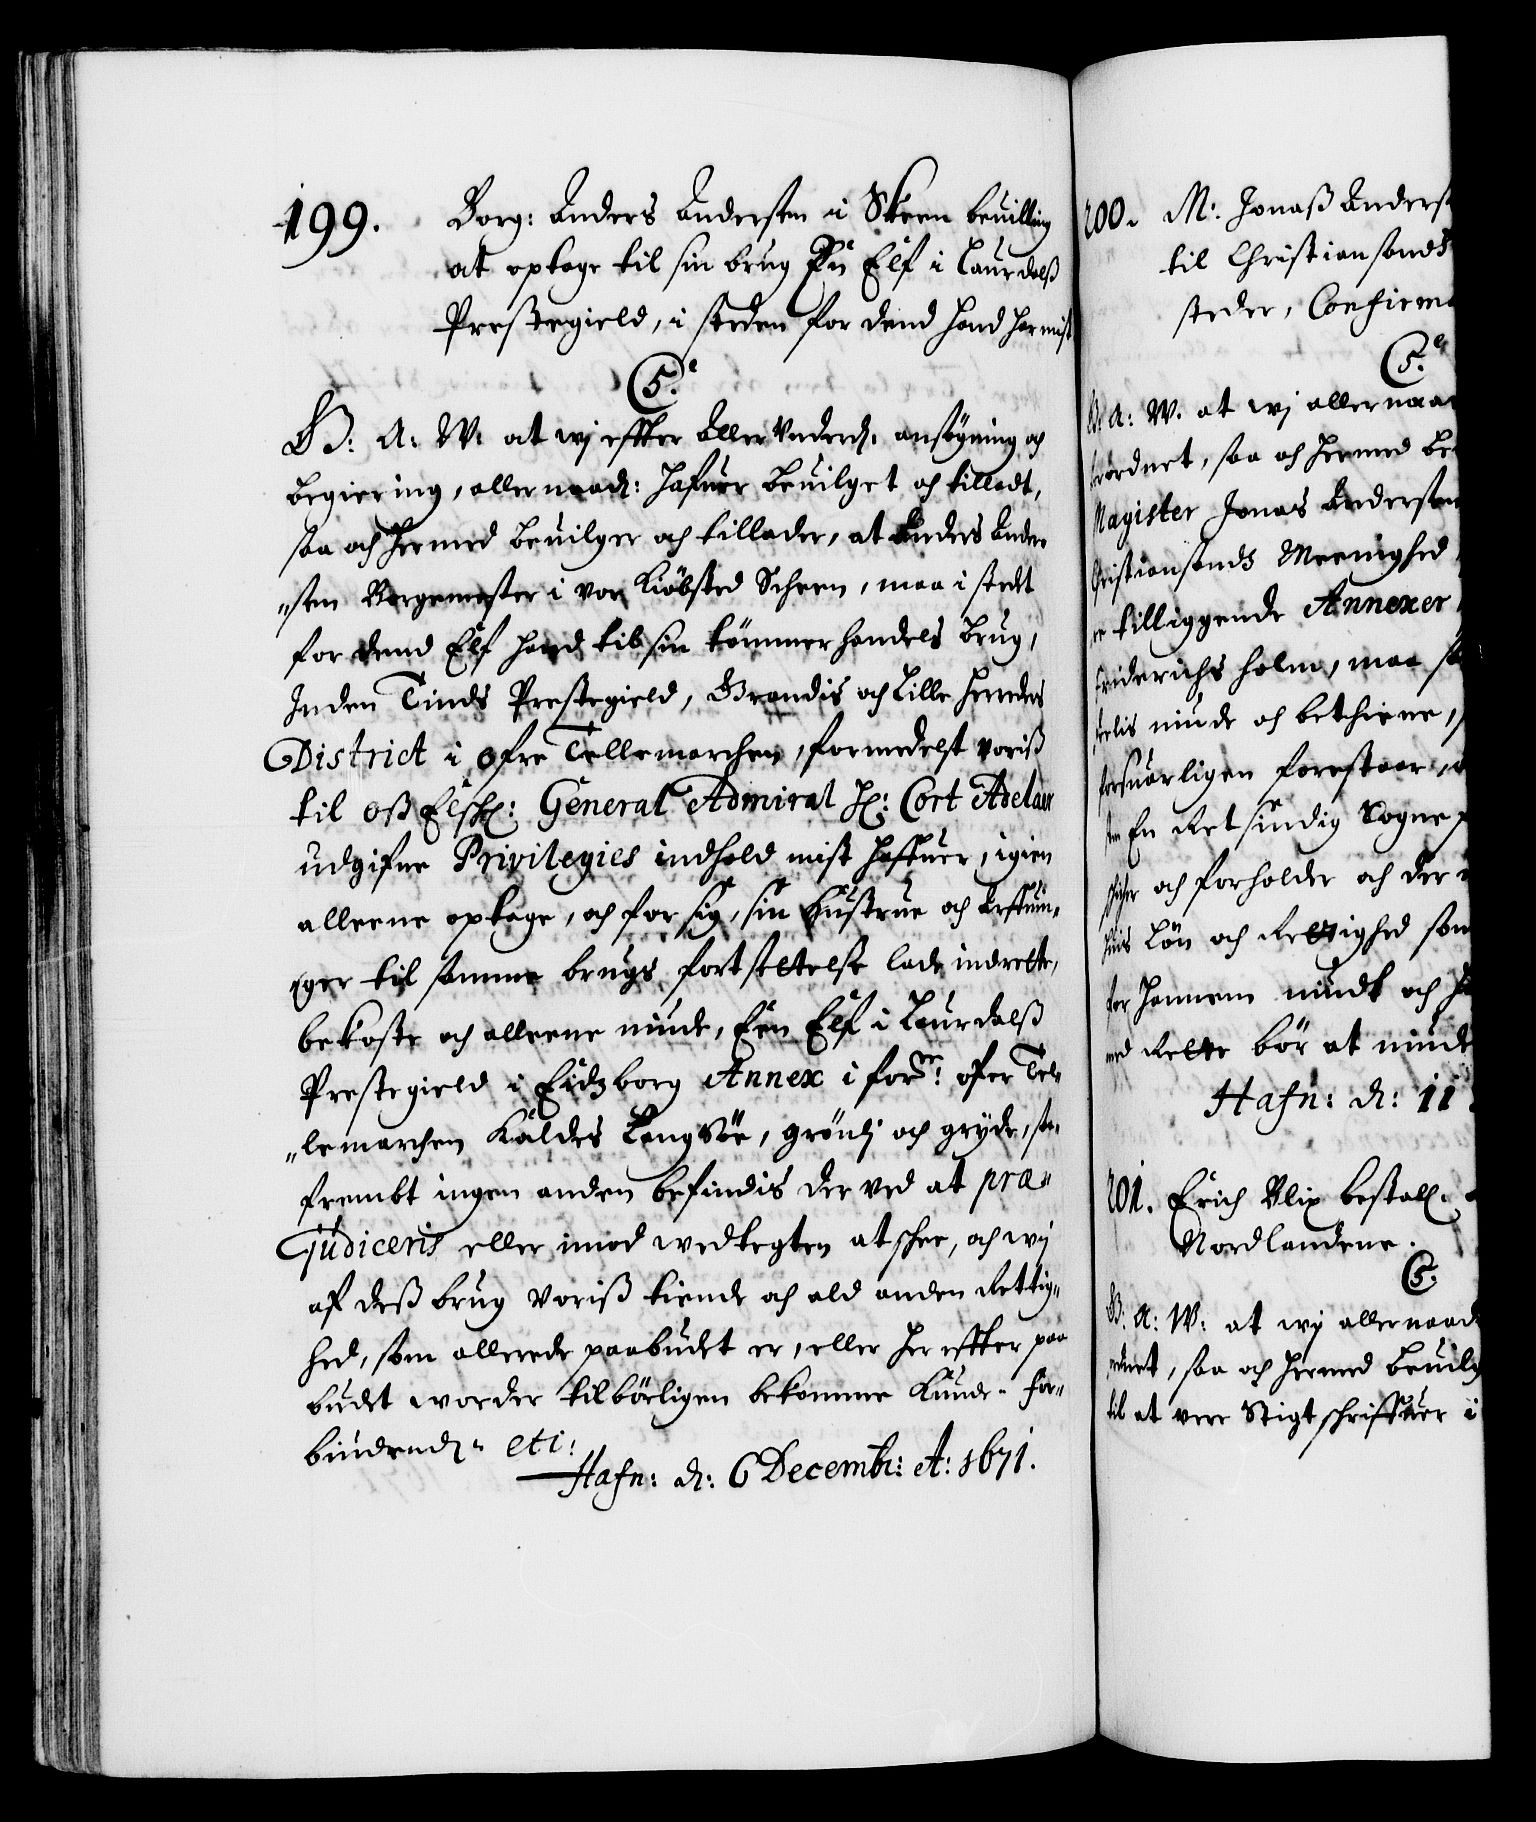 199. Borg: Anders Andersen i Skeen bevilling
at optage til sin brug En Elf i Laurdalß
Prestegield, i steden for dend hand har mist
C5.e
G: A: W: at wj effter Aller underd: ansögning och
begiering, allernaad: hafuer bevilget och tilladt,
saa och hermed bevilger och tillader, at Anders Ander
"sen Borgemester i vor Kiöbsted Scheen, maa i stedt
for dend Elf hand til sin tömmerhandels brug,
Inden Tinds Prestegield, Grandis och Lille Herreders
District i öfre Tellemarchen, formedelst voriß
til oß Elsch: General Admiral H: Cort Adelaer
udgifne Privilegies indhold mist haffuer, igien
alleene optage, och for sig, sin Hustrue och Arffuin"
"ger til samme brugs fortsettelse lade indrette,
bekoste och alleene niude, Een Elf i Laurdalß
Prestegield i Eidzborg Annex i forne: ofer Tel"
"lemarchen kaldes LangSöe, grönlj och gryde, saa"
frembt ingen anden befindis der ved at præ"
Judiceris eller imod wedtegten at schee, och wij
af deß brug voriß tiende och ald anden Rettig"
hed, som allerede paabudet er, eller her effter paa
budet worder tilbörligen bekomme kunde. For"
biudend: etc:
Hafn: d: 6 Decemb: A: 1671.
200. M: Jonaß Anders
til Christiansands
steder, Confirma
C5.e
G: A: W. at wj allernaa
ordnet, saa och hermed be
Magister Jonas Andersen
Christiansands Meenighed
tilliggende Annexer
Friderichs holm, maa
niude och bethiene,
forsuarligen forestaar,
En Retsindig Sogne
och forholder och der
Lön och Rettighed som
for hannem niudt och
med Rette bör at niude
Hafn: d: 11
201. Erich Blix bestall:
Nordlandene.
C5.
G: A: W: at wij allernaad
ordnet, saa och hermed bevilg
til at vere Stigtschriffuer i